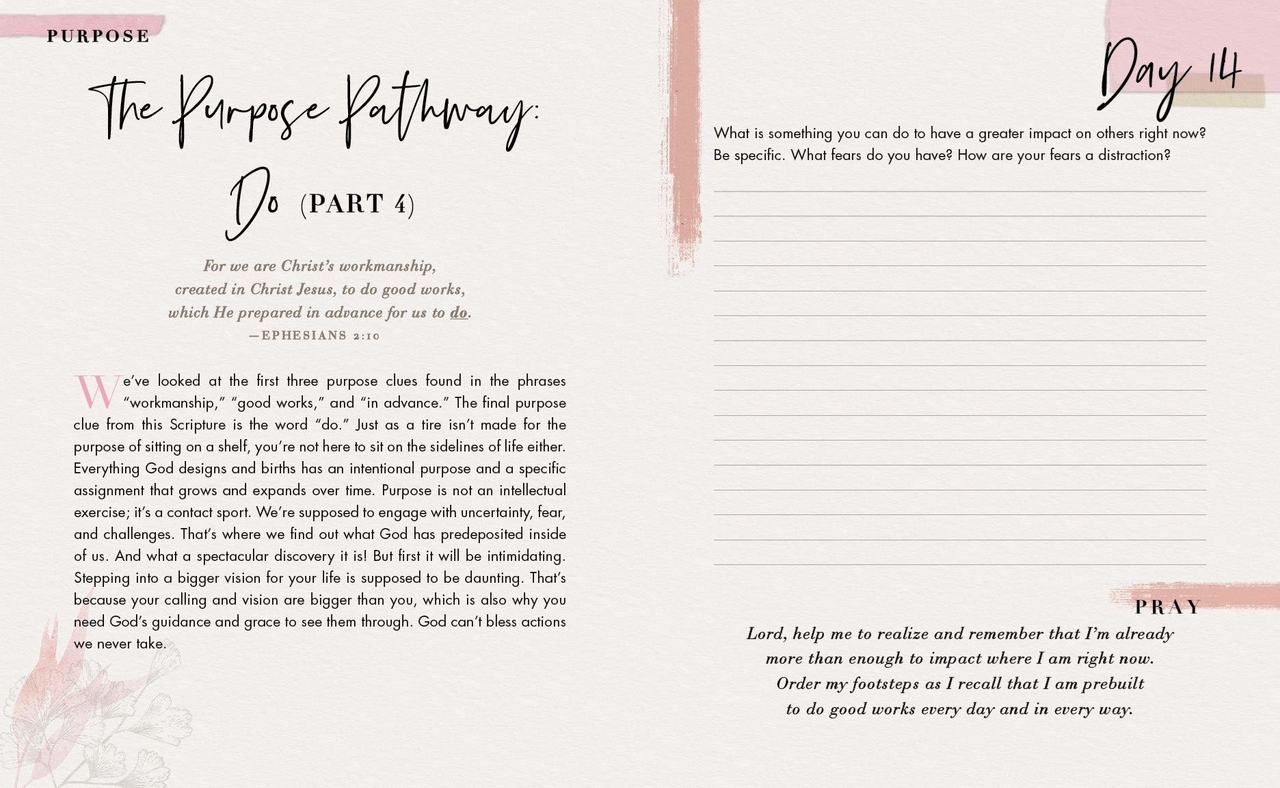 PURPOSE
The Purpose Pathway:
Do (PART 4)
For we are Christ’s workmanship,
created in Christ Jesus, to do good works,
which He prepared in advance for us to do.
—EPHESIANS 2:10
We’ve looked at the first three purpose clues found in the phrases
“workmanship,” “good works,” and “in advance.” The final purpose
clue from this Scripture is the word “do.” Just as a tire isn’t made for the
purpose of sitting on a shelf, you’re not here to sit on the sidelines of life either.
Everything God designs and births has an intentional purpose and a specific
assignment that grows and expands over time. Purpose is not an intellectual
exercise; it’s a contact sport. We’re supposed to engage with uncertainty, fear,
and challenges. That’s where we find out what God has predeposited inside
of us. And what a spectacular discovery it is! But first it will be intimidating.
Stepping into a bigger vision for your life is supposed to be daunting. That’s
because your calling and vision are bigger than you, which is also why you
need God’s guidance and grace to see them through. God can’t bless actions
we never take.
Day 14
What is something you can do to have a greater impact on others right now?
Be specific. What fears do you have? How are your fears a distraction?
PRAY
Lord, help me to realize and remember that I’m already
more than enough to impact where I am right now.
Order my footsteps as I recall that I am prebuilt
to do good works every day and in every way.